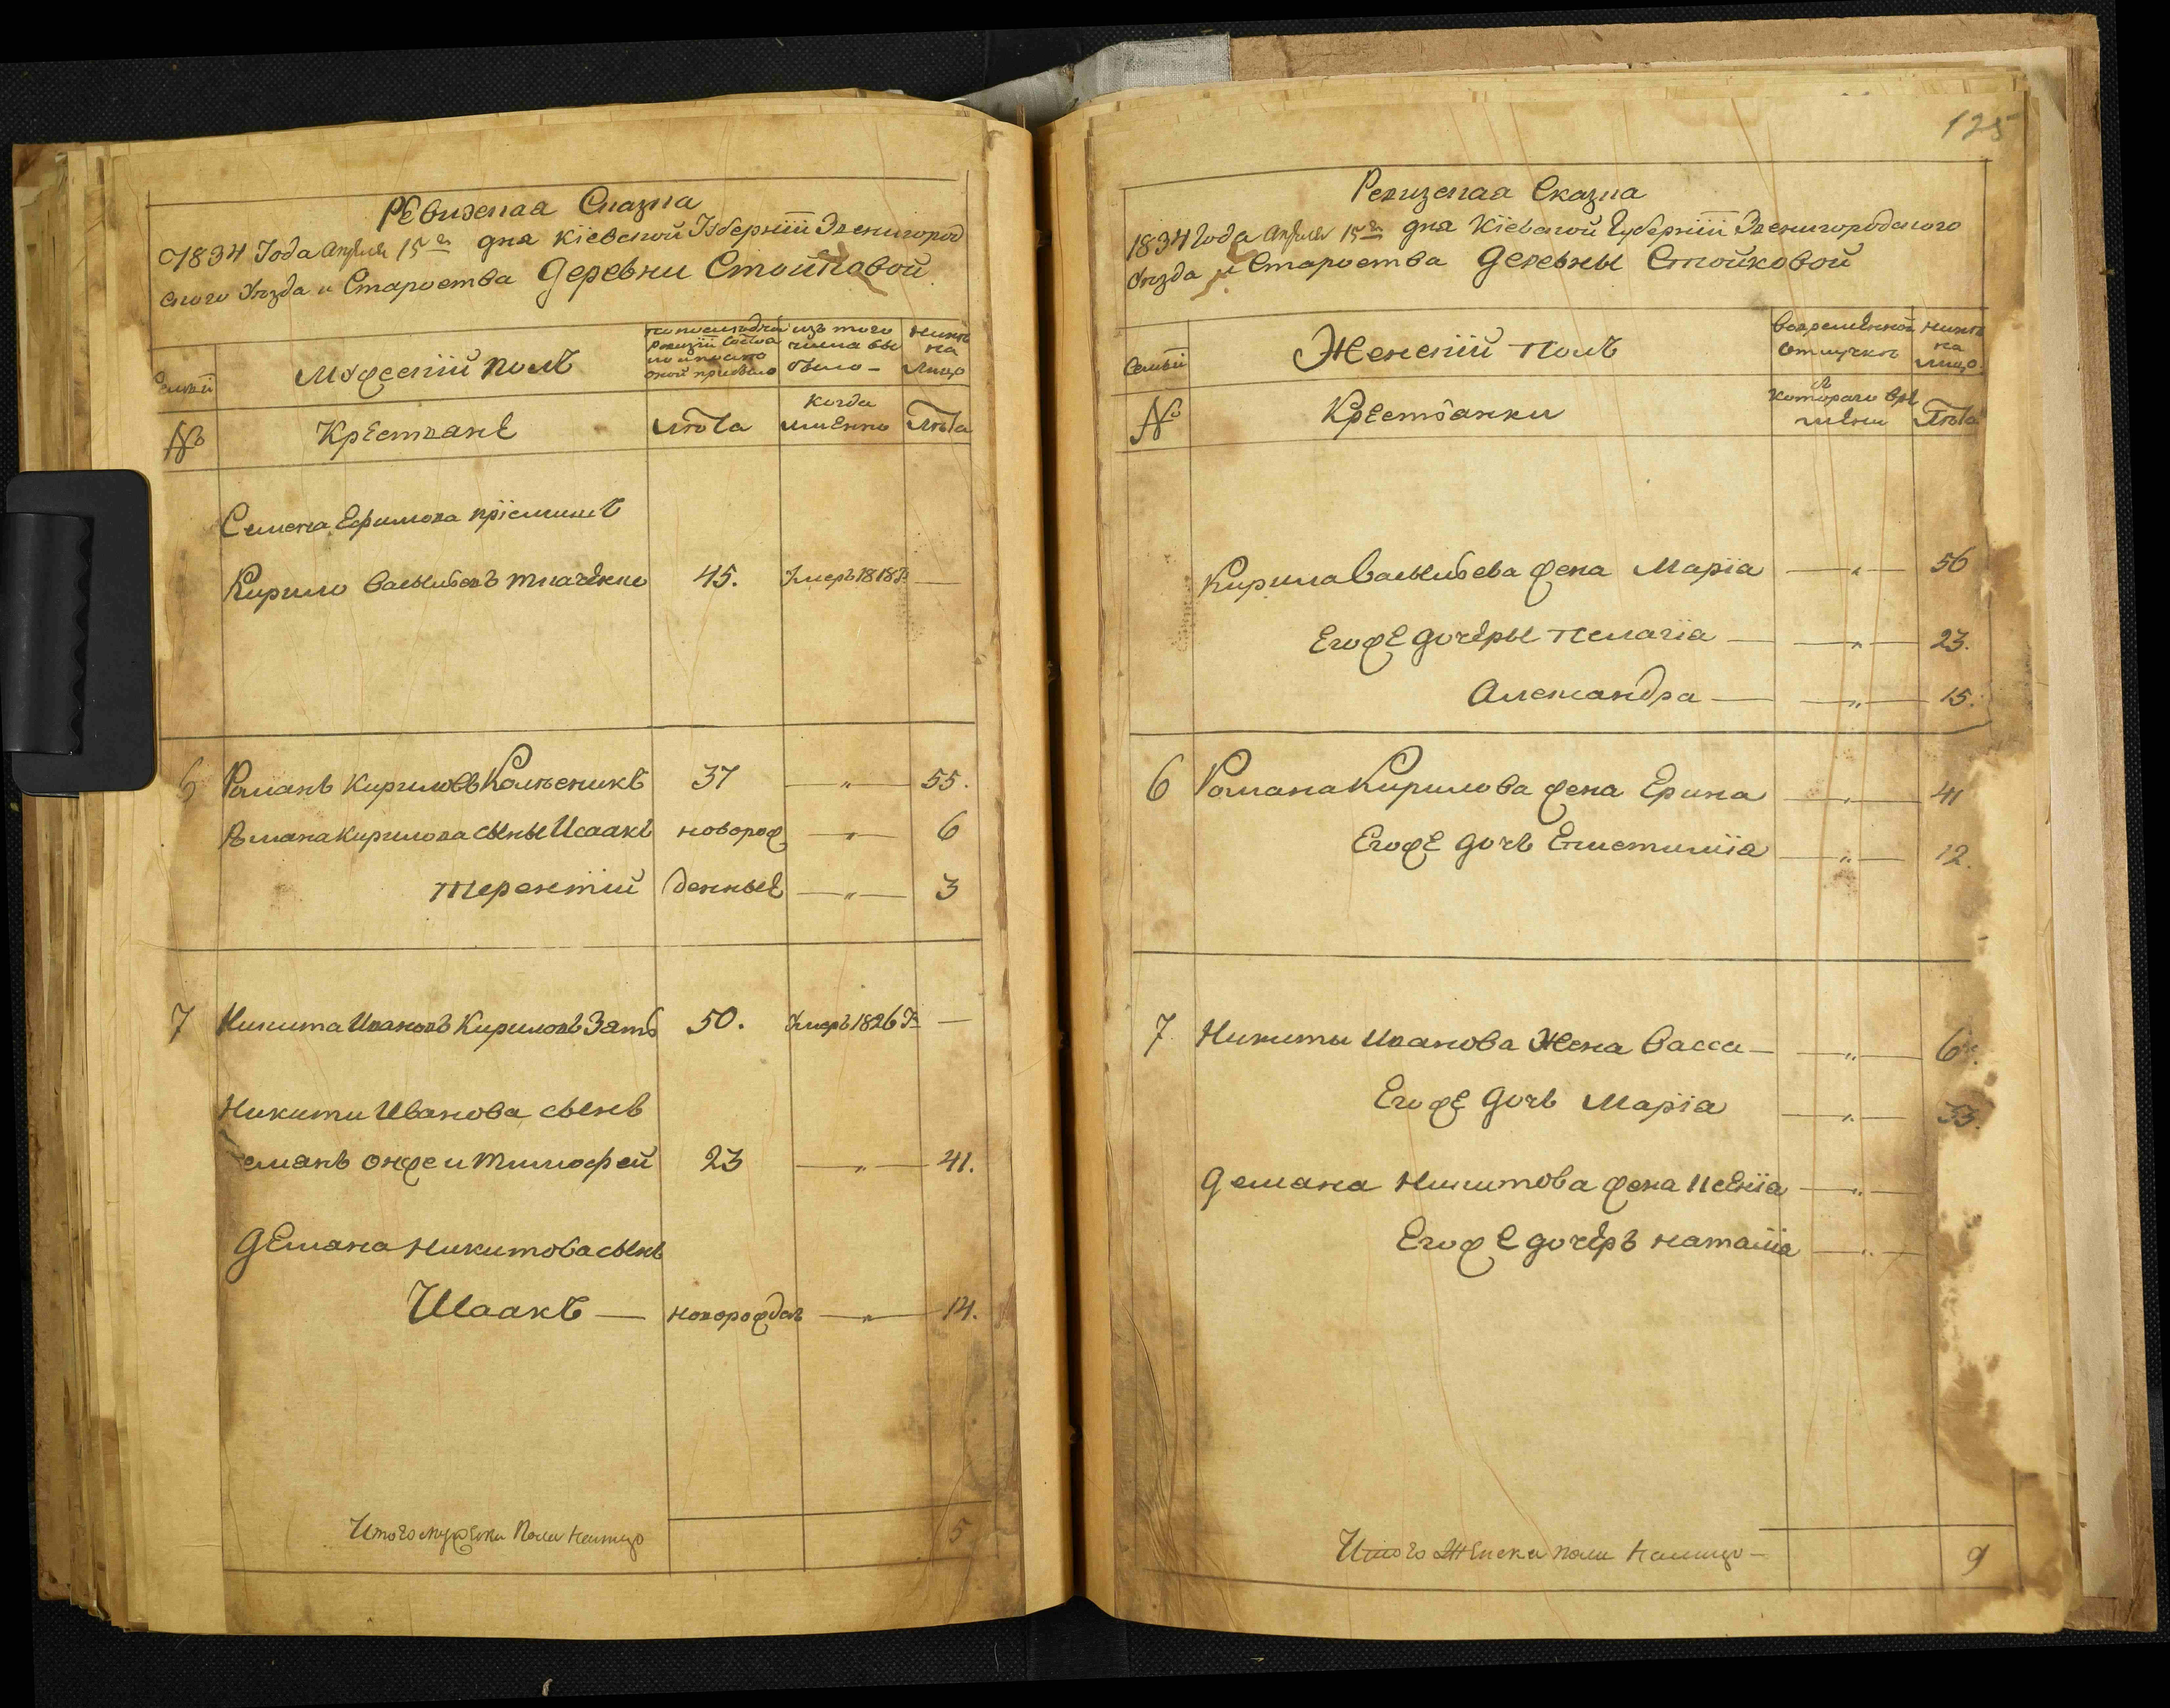 Ревизская Сказка
1834 Года Апреля 15го дня Кіевской Губерніи Звенигород
ского Уезда и Староства Деревни Стойковой
Семьи
Мужескій полъ
по последней ревизіи состоя
ло и после
оной прибыло
изъ того
числа вы
было
Ныне
на
лицо
№
Крестьяне
лѣта
когда
именно
Лѣта
Семена Ефимова пріемишъ
Кирило Васыльевъ Ткаченко 45. Умеръ 1818 Г. —
6 Романъ Кириловъ Колесникъ 37 — „ — 55.
Романа Кирилова сыны Исаакъ новорож — „ — 6
Терентій денные — „ — 3
7 Никита Ивановъ Кириловъ Зять 50. Умеръ 1826 Г —
Никиты Иванова сынъ
Демянъ онже и Тимофей 23 — „ — 41.
Демяна Никитова сынъ
Исаакъ — новорожден — „ — 14.
Итого мужеска Пола на лицо 5
125
Ревизская Сказка
1834 Года Апреля 15го дня Кіевской Губерніи Звенигородского
Уезда и Староства Деревны Стойковой
Семьи
Женскій полъ
Во временной
отлучки
Ныне
на
лицо.
№
Крестьянки
съ
котораго вре
мени
Лѣта
Кирила Васыльева жена Марія — „ — 56
Егоже дочеры Пелагія — — „ — 23.
Александра — — „ — 15.
6 Романа Кирилова жена Ерина — „ — 41
Егоже дочь — „ — 12.
7 Никиты Иванова Жена Васса — — „ —
Егоже дочь Марія — „ — 33.
Демяна Никитова жена — „ —
Егоже дочеръ Наталія — „ —
Итого Женска пола на лицо — 9